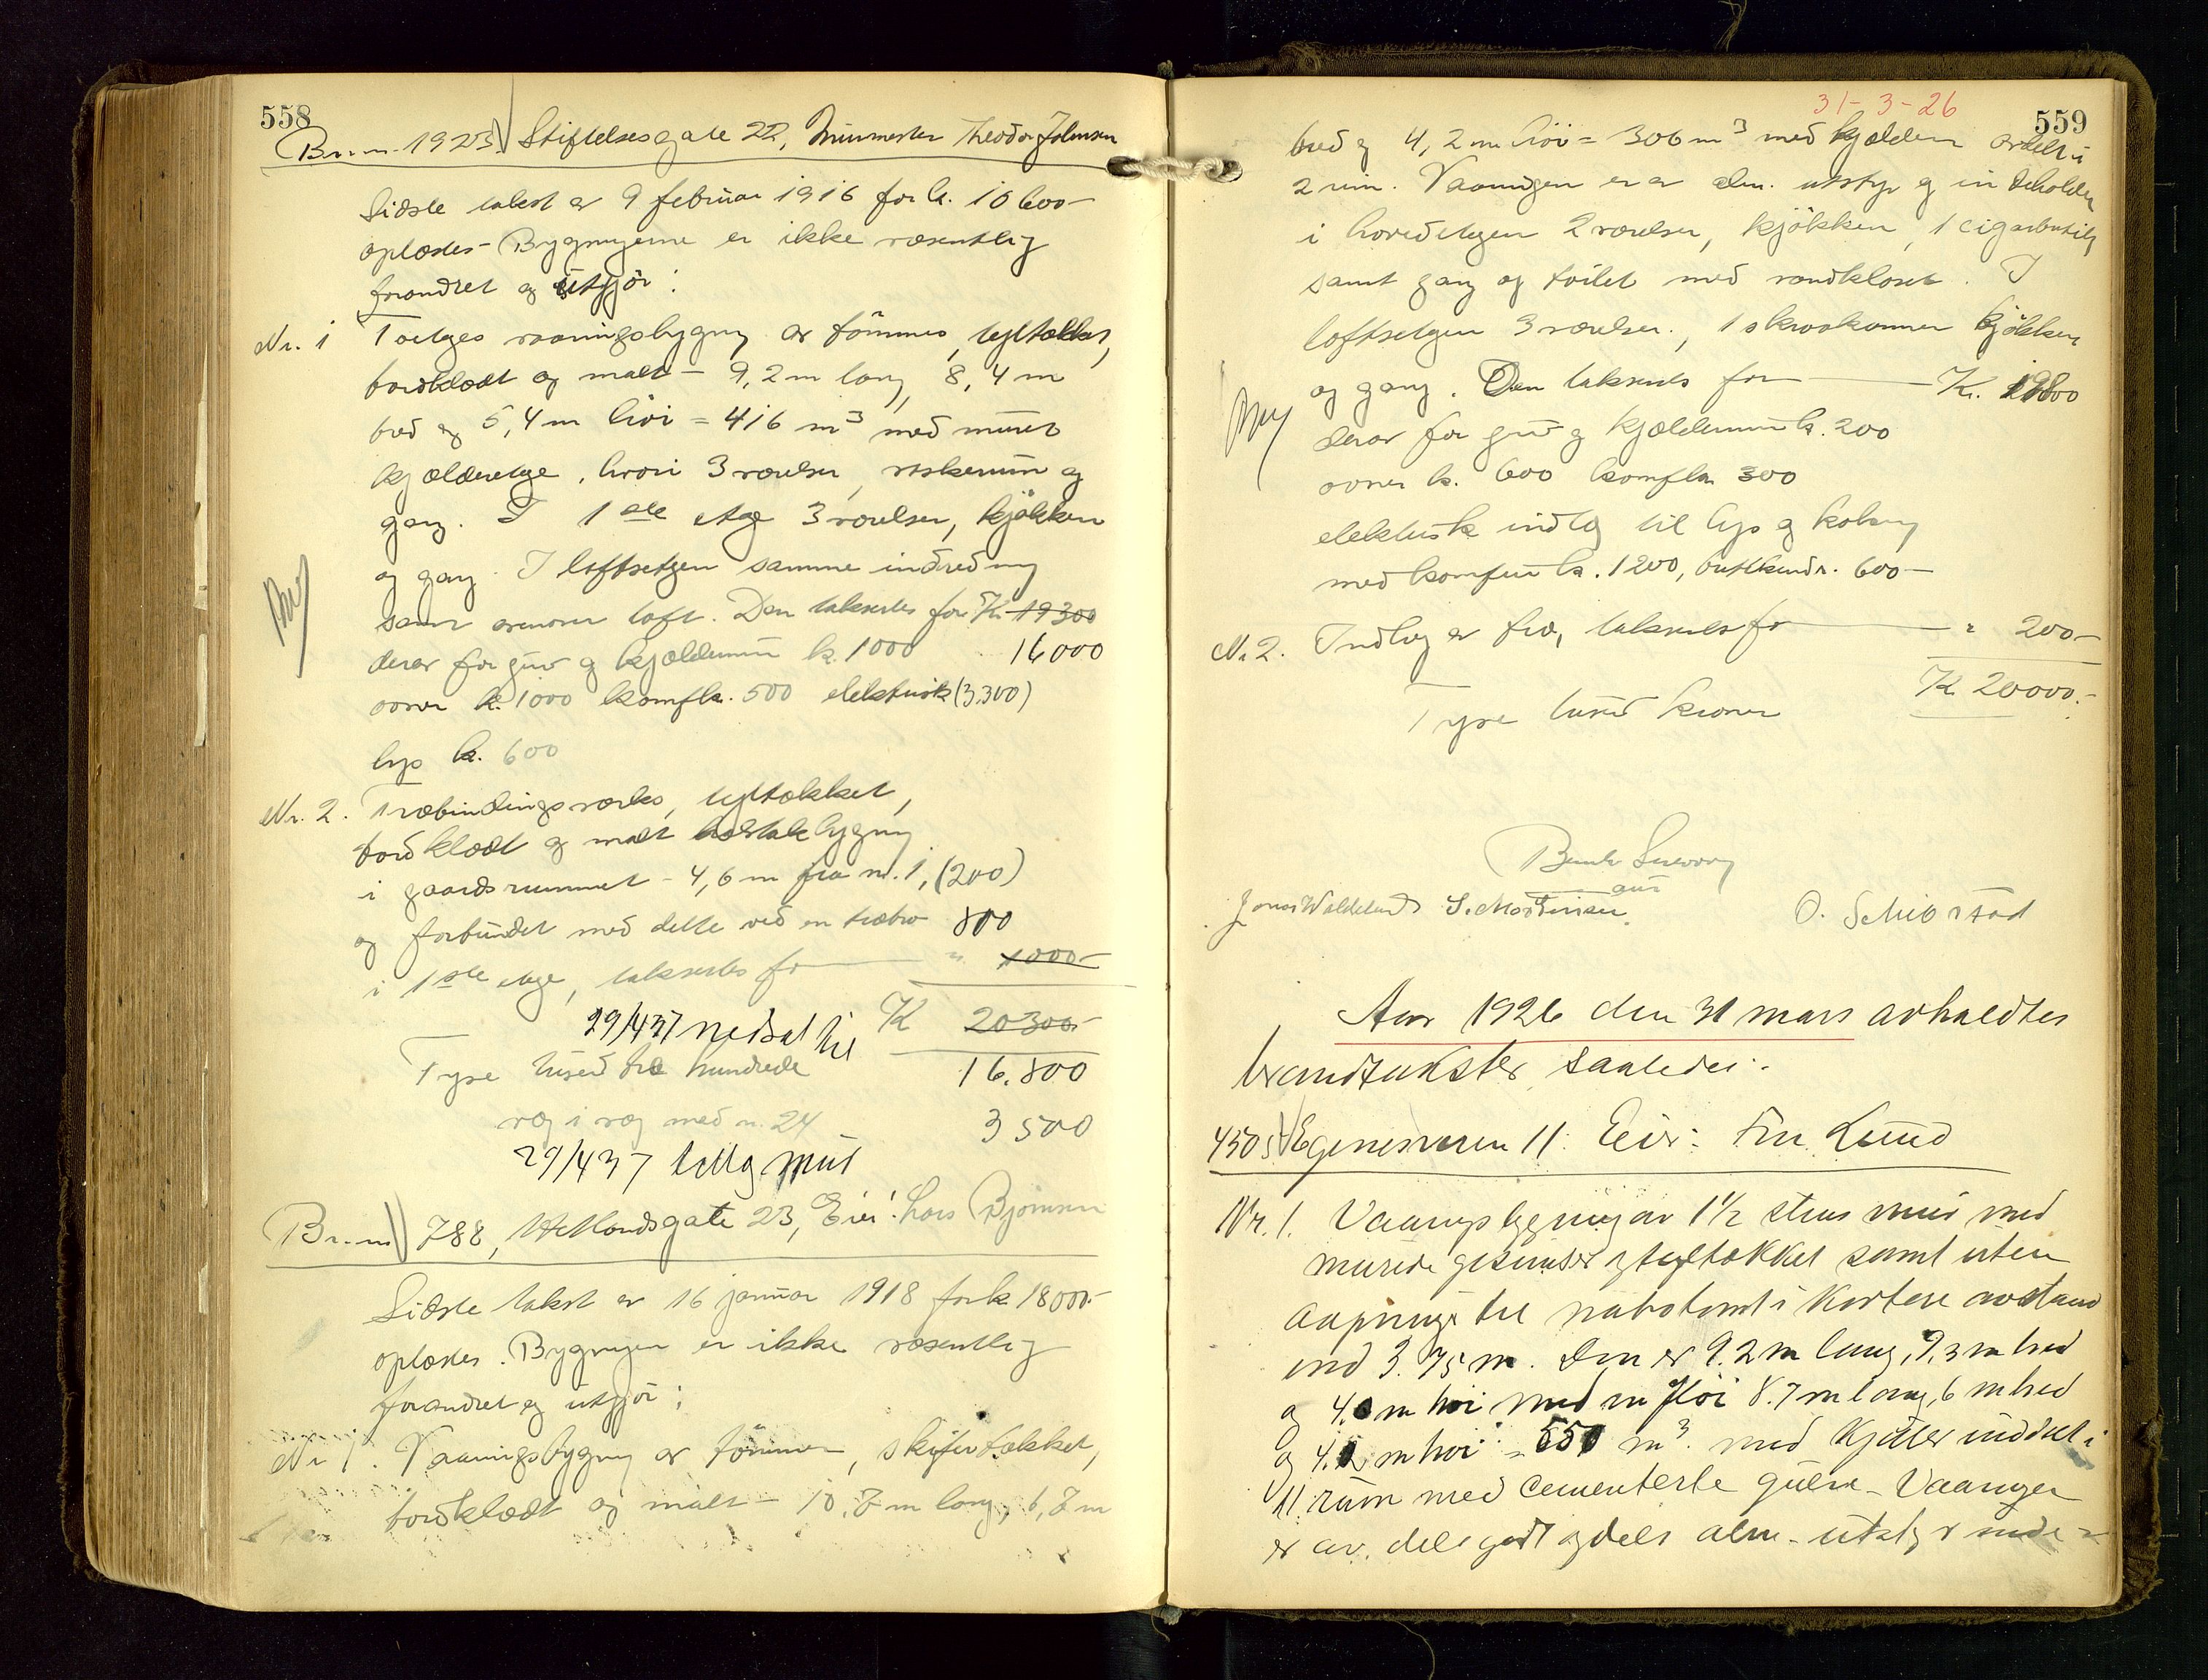 558
Br.nr. 1923 Stiftelsesgate 22, Murmester Theodor Johnsen
Sidste takst av 9 februar 1916 for kr. 10600-
oplæstes - Bygningerne er ikke væsentlig
forandret og utgjør:
Nr. 1 1 etages vaaningsbygning av tømmer, tegltækket,
bordklædt og malt - 9,2 m lang, 8,4 m
bred og 5,4 m høi = 416 m³ med muret
kjælderetage, hvori 3 værelser, vaskerum og
gang. I 1ste etage 3 værelser, kjøkken
og gang. I loftsetagen samme indredning
samt øverover loft. Den takseres for Kr. 19300
derav for grus og kjældermur kr. 1000 16000
ovner kr. 1000 komf kr. 500 elektrisk (3.300)
lys kr. 600
Nr. 2. Træbindingsverks, tegltækket,
bordklædt og malt bygning
i gaardsrummet - 4,6 m fra nr. 1, (200)
og forbundet med dette ved en træbro 800
i 1ste etage, takseres for " 1000-
29/4 37 nedsat til K 20300-
Tyve tused tre hundrede 16.800
væg i væg med nr. 24 3500
29/4 37 tillæg mur
Br.nr. 788, Hetlandsgate 23, Eier: Lars Bjørnsen
Sidste takst av 16 januar 1918 for kr. 18000-
oplæstes. Bygningen er ikke væsentlig
forandret og utgjør:
Nr. 1. Vaaningsbygning av tømmer, skifertækket,
bordklædt og malt - 10,7 m lang, 6,7 m
31-3-26
559
bred og 4,2 m høi = 306 m³ med kjælder avdelt i
2 rum. Vaaningen er av alm. utstyr og indeholder
i hovedetagen 2 værelser, kjøkken, 1 cigarbutik
samt gang og toilet med vandkloset. I
loftsetagen 3 værelser, 1 skraakammer kjøkken
og gang. Den takseres for Kr. 19800
derav for grus og kjældermur kr. 200
ovner kr. 600 komf kr. 300
elektrisk indlæg til lys og kokning
med komfur kr. 1200, butikindr. 600-
Nr. 2. Indlæg av træ, takseres for " 200-
Kr. 20000.-
Tyve tused kroner
Jonas Waldeland S. Mortensen O. Schibstad
Aar 1926 den 31 mars avholdtes
brandtakster saaledes:
450 Egenesveien 11: Eier: Finn Lund
Nr. 1. Vaaningsbygning av 1½ stens mur med
murede gesimser og tegltækket samt uten
aapninger til nabotomt i kortere avstand
end 3.75 m. Den er 9.2 m lang, 9,3 m bred
og 4.0 m høi med en fløi 8.7 m lang, 6 m bred
og 4. m høi = 550 m³. med kjelder inddelt i
11 rum med cementerte gulve - Vaaningen
er av dels godt og dels alm. utstyr inde-